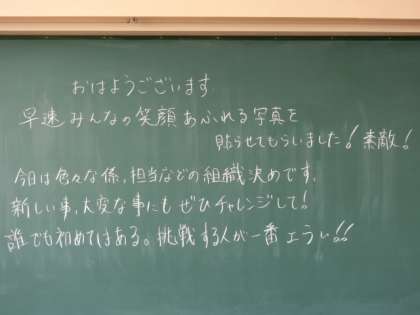 おはようございます
早速みんなの笑顔あふれる写真を
貼らせてもらいました!素敵!
今日は色々な係,担当などの組織決めです。
新しい事,大変な事にもぜひチャレンジして!
誰でも初めてはある。挑戦する人が一番エラい!!